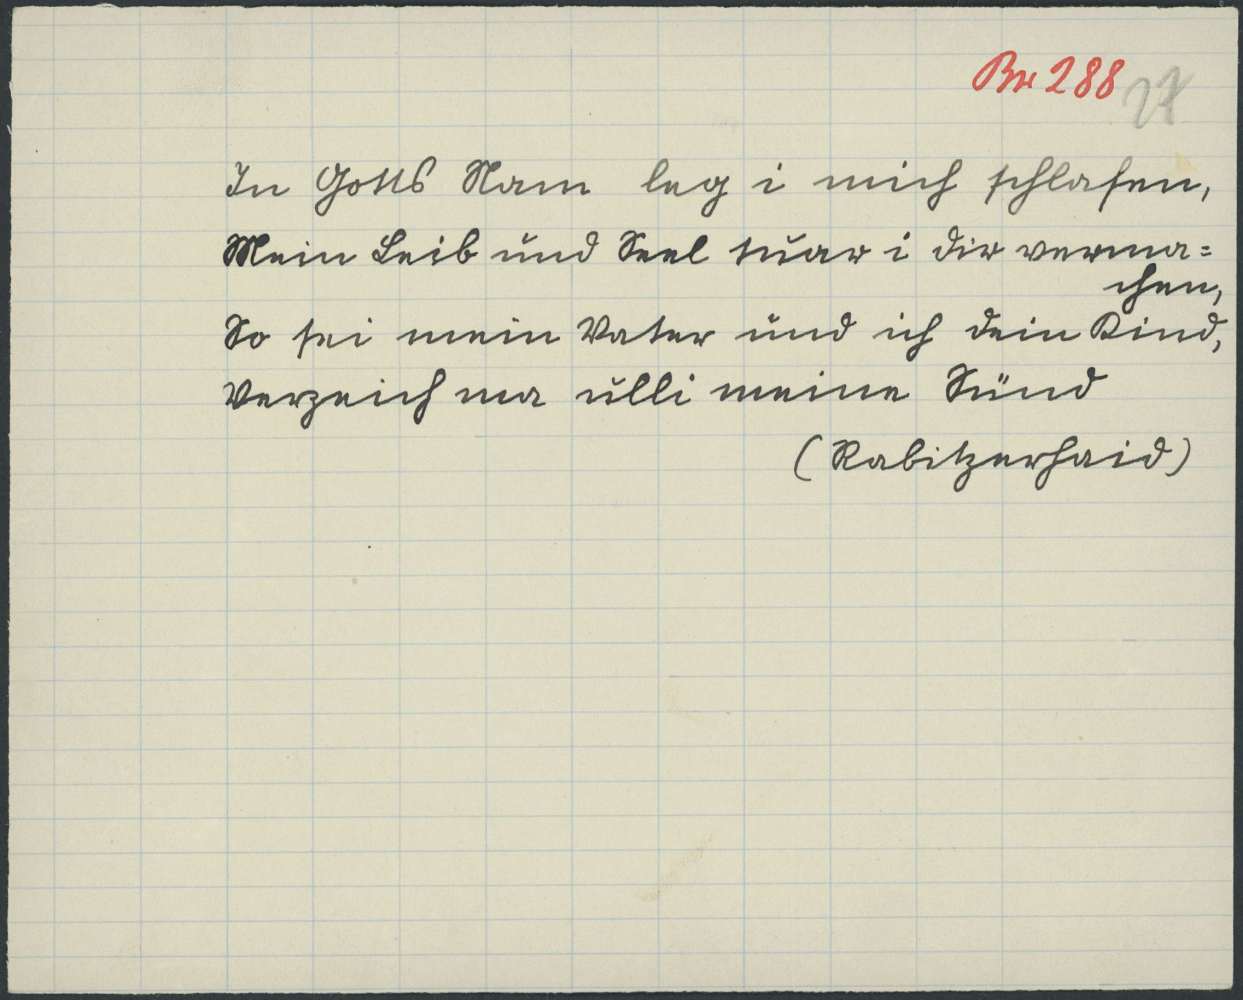 Br 288 27
In Gotts Nam leg i mich schlafen,
Mein Leib und Seel tuar i dir verma=
chen,
So sei mein Vater und ich dein Kind,
Verzeich ma ulli meine Sünd
(Rabitzerhaid)